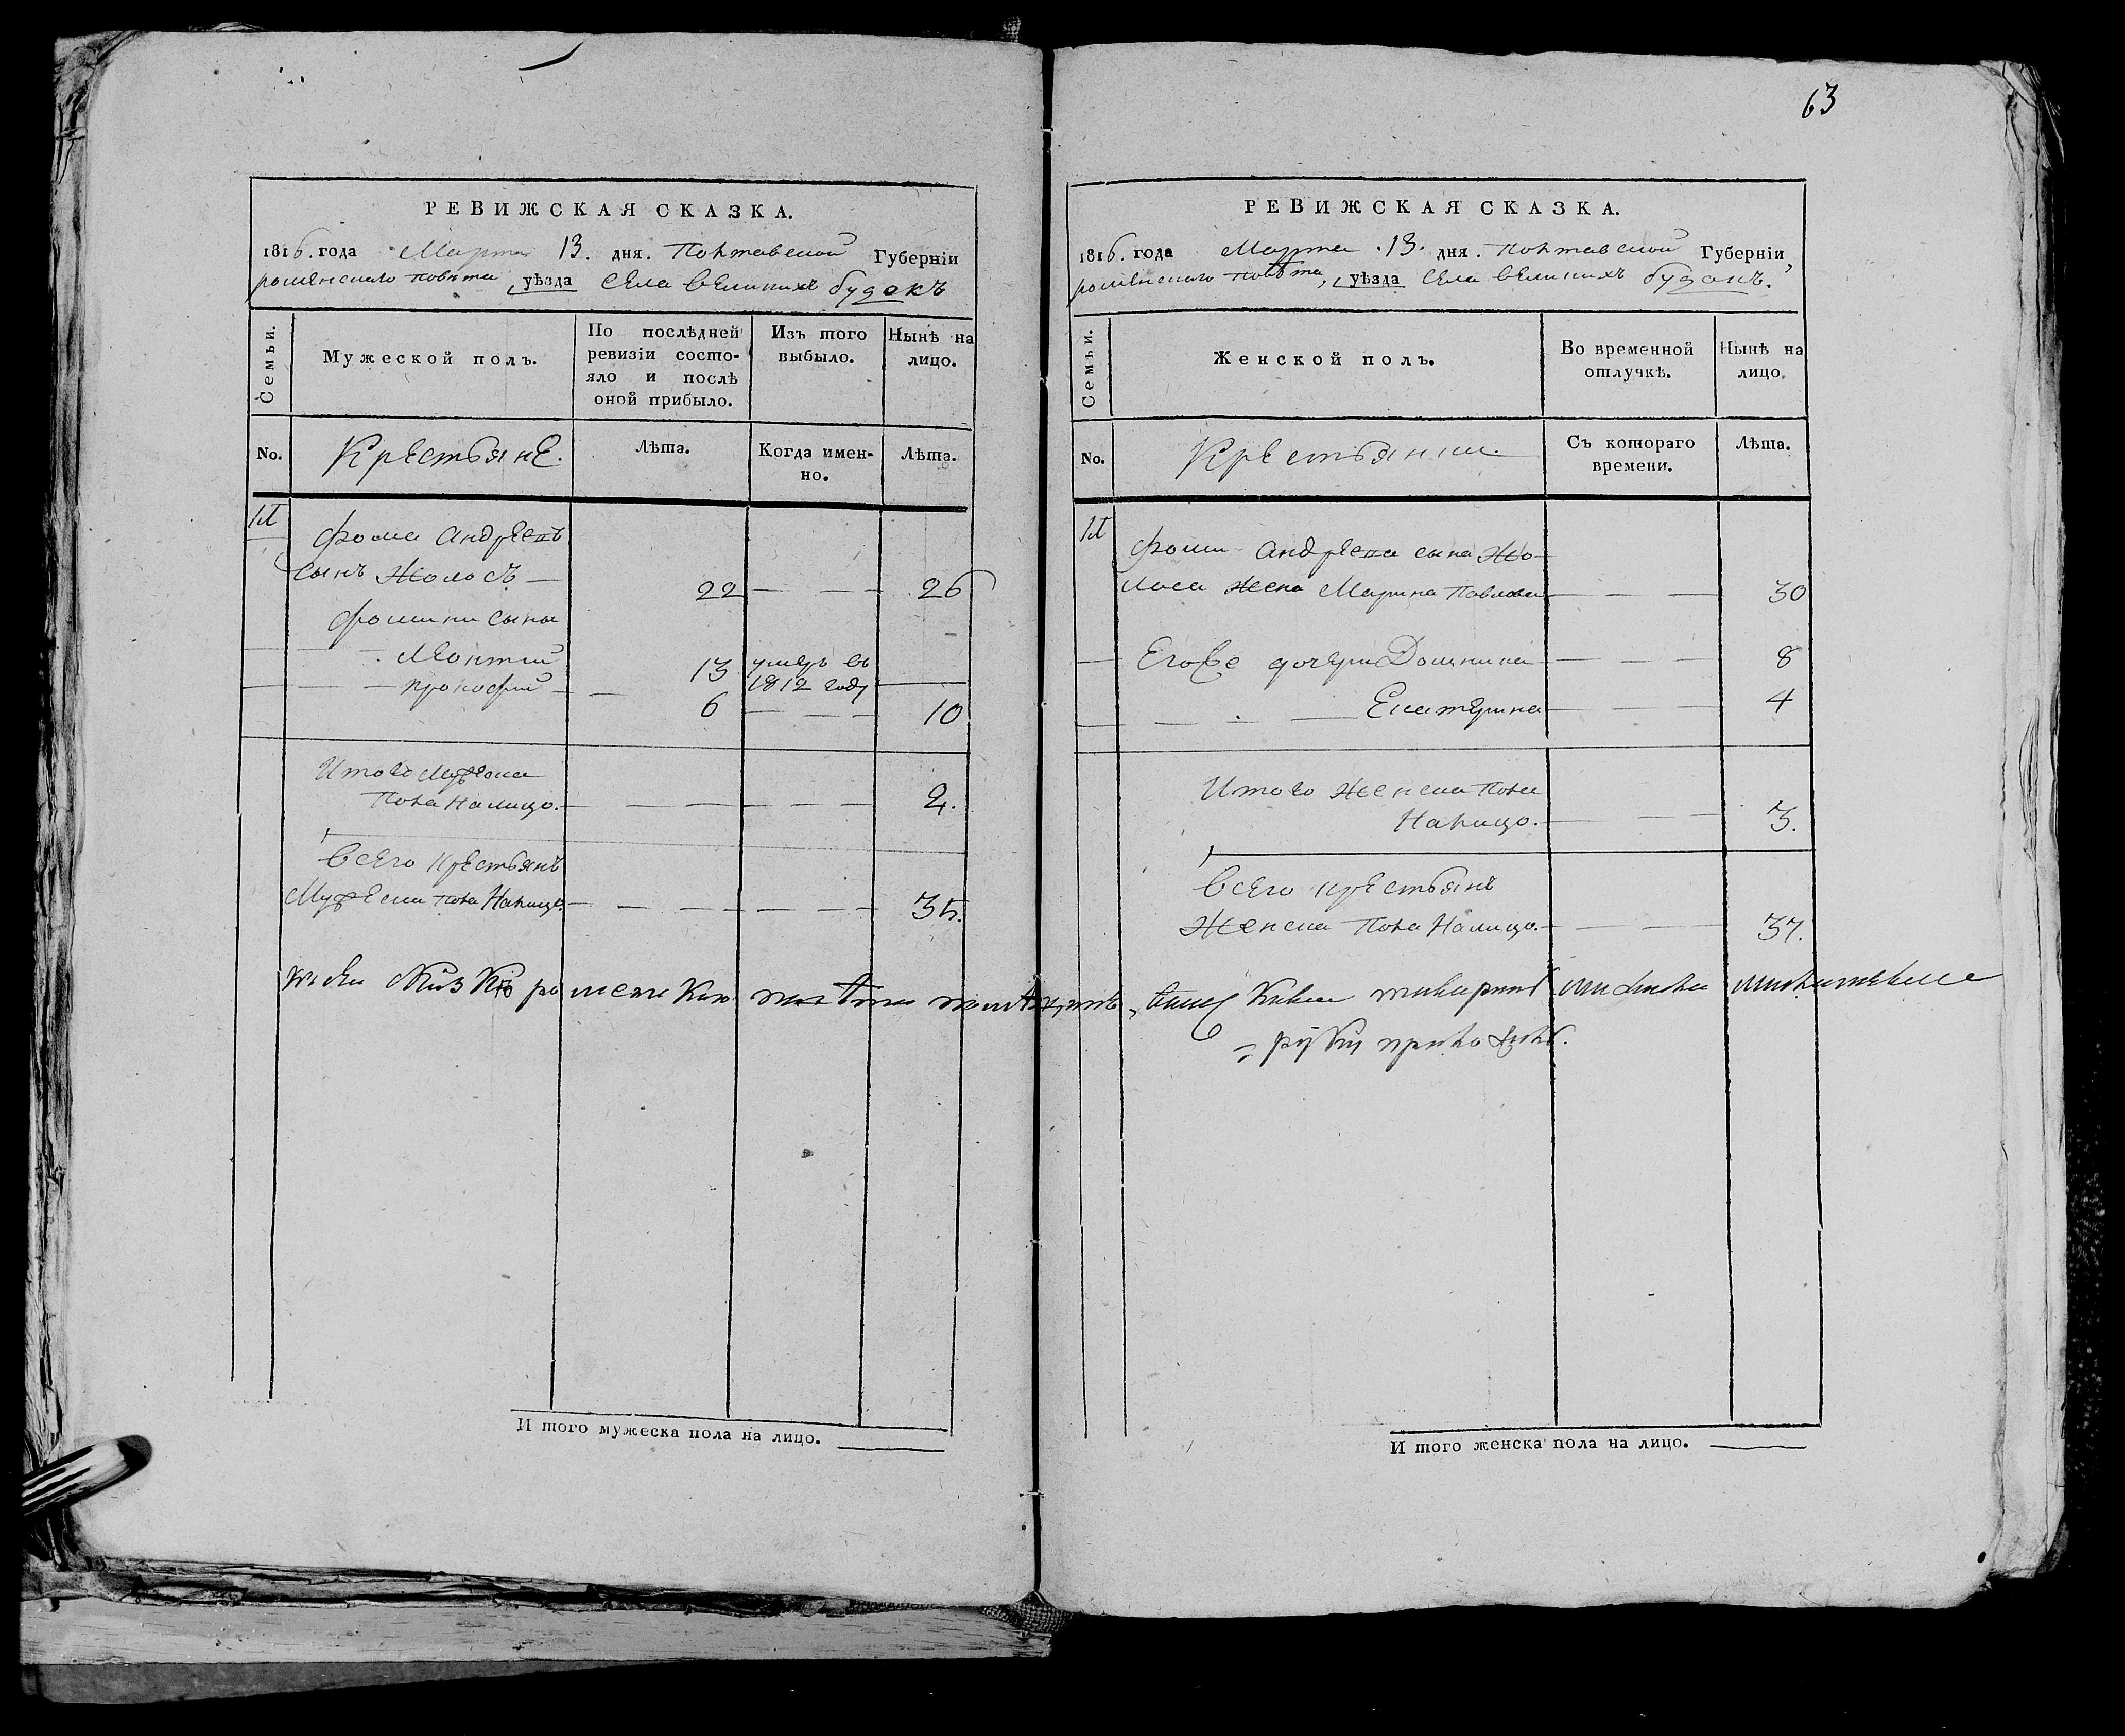 63
РЕВИЖСКАЯ СКАЗКА.
1816. года Марта 13. дня. Полтавской Губерніи
роменскаго повѣта, уѣзда села великихъ будокъ
Семьи.
Мужеской полъ.
По последней ревизіи состояло и послѣ оной прибыло.
Изъ того выбыло.
Нынѣ на лицо.
No.
Крестьяне.
Лѣта.
Когда именно.
Лѣта.
Фома Андреевъ
сынъ Жолосъ — 22 — — 26
Фомини сыны
Леонтий 13 умеръ въ 1812 году —
прокофий — 6 — — 10
Итого Мужеска
Пола Налицо. — — — — — 2.
Всего крестьянъ
Мужеска пола Налицо. — — — — — 35.
РЕВИЖСКАЯ СКАЗКА.
1816. года Марта 13. дня. полтавской Губерніи,
роменскаго повѣта, уѣзда села великихъ будокъ.
Семьи.
Женской полъ.
Во временной отлучкѣ.
Нынѣ на лицо.
No.
Крестьянки.
Съ котораго времени.
Лѣта.
Фоми Андреева сына Жо-
лоса жена Марина Павлова — — — 30
Его дочери Домникия — — — 8
Екатерина — — — 4
Итого женска пола
Налицо. — — — 3.
Всего крестьянъ
Женска пола Налицо. — — — 37.
руку приложилъ.
И того мужеска пола на лицо.
И того женска пола на лицо.